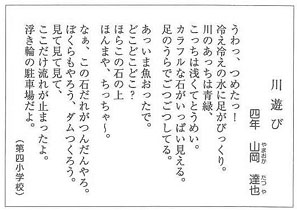 川遊び
四年　山岡　達也
やまおか　たつや
うわっ、つめたっ！
冷え冷えの水に足がびっくり。
川のあっちは青緑、
こっちは浅くてとうめい。
カラフルな石がいっぱい見える。
足のうらでごつごつしてる。
あっいま魚おったで。
どこどこどこ？
ほらこの石の上
ほんまや、ちっちゃ～。
なぁ、この石だれがつんだんやろ。
ぼくらもやろう、ダムつくろう。
見て見て見て、
ここだけ流れが止まったよ。
浮き輪の駐車場だよ。
（第四小学校）